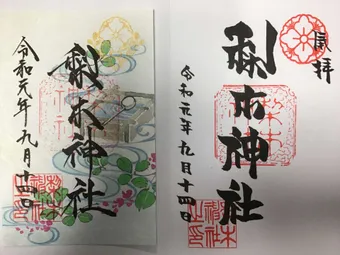 梨木神社
令和元年九月十四日
奉拝
梨木神社
令和元年九月十四日